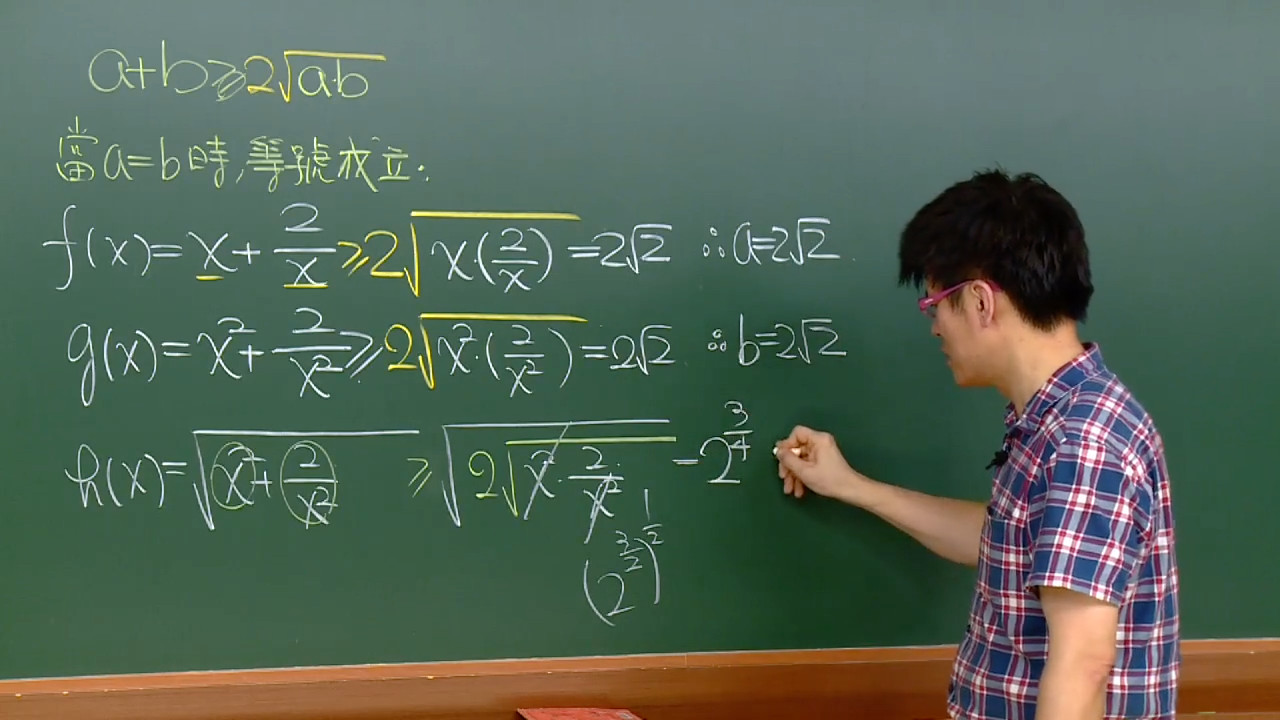 a+b≥2√(a·b)
當a=b時,等號成立.
f(x)=x+2/x≥2√(x·(2/x))=2√2 ∴a=2√2
g(x)=x²+2/x²≥2√(x²·(2/x²))=2√2 ∴b=2√2
h(x)=√(x²+2/x²) ≥√(2√(x²·2/x²))=2^(3/4)
(2^(3/2))^(1/2)